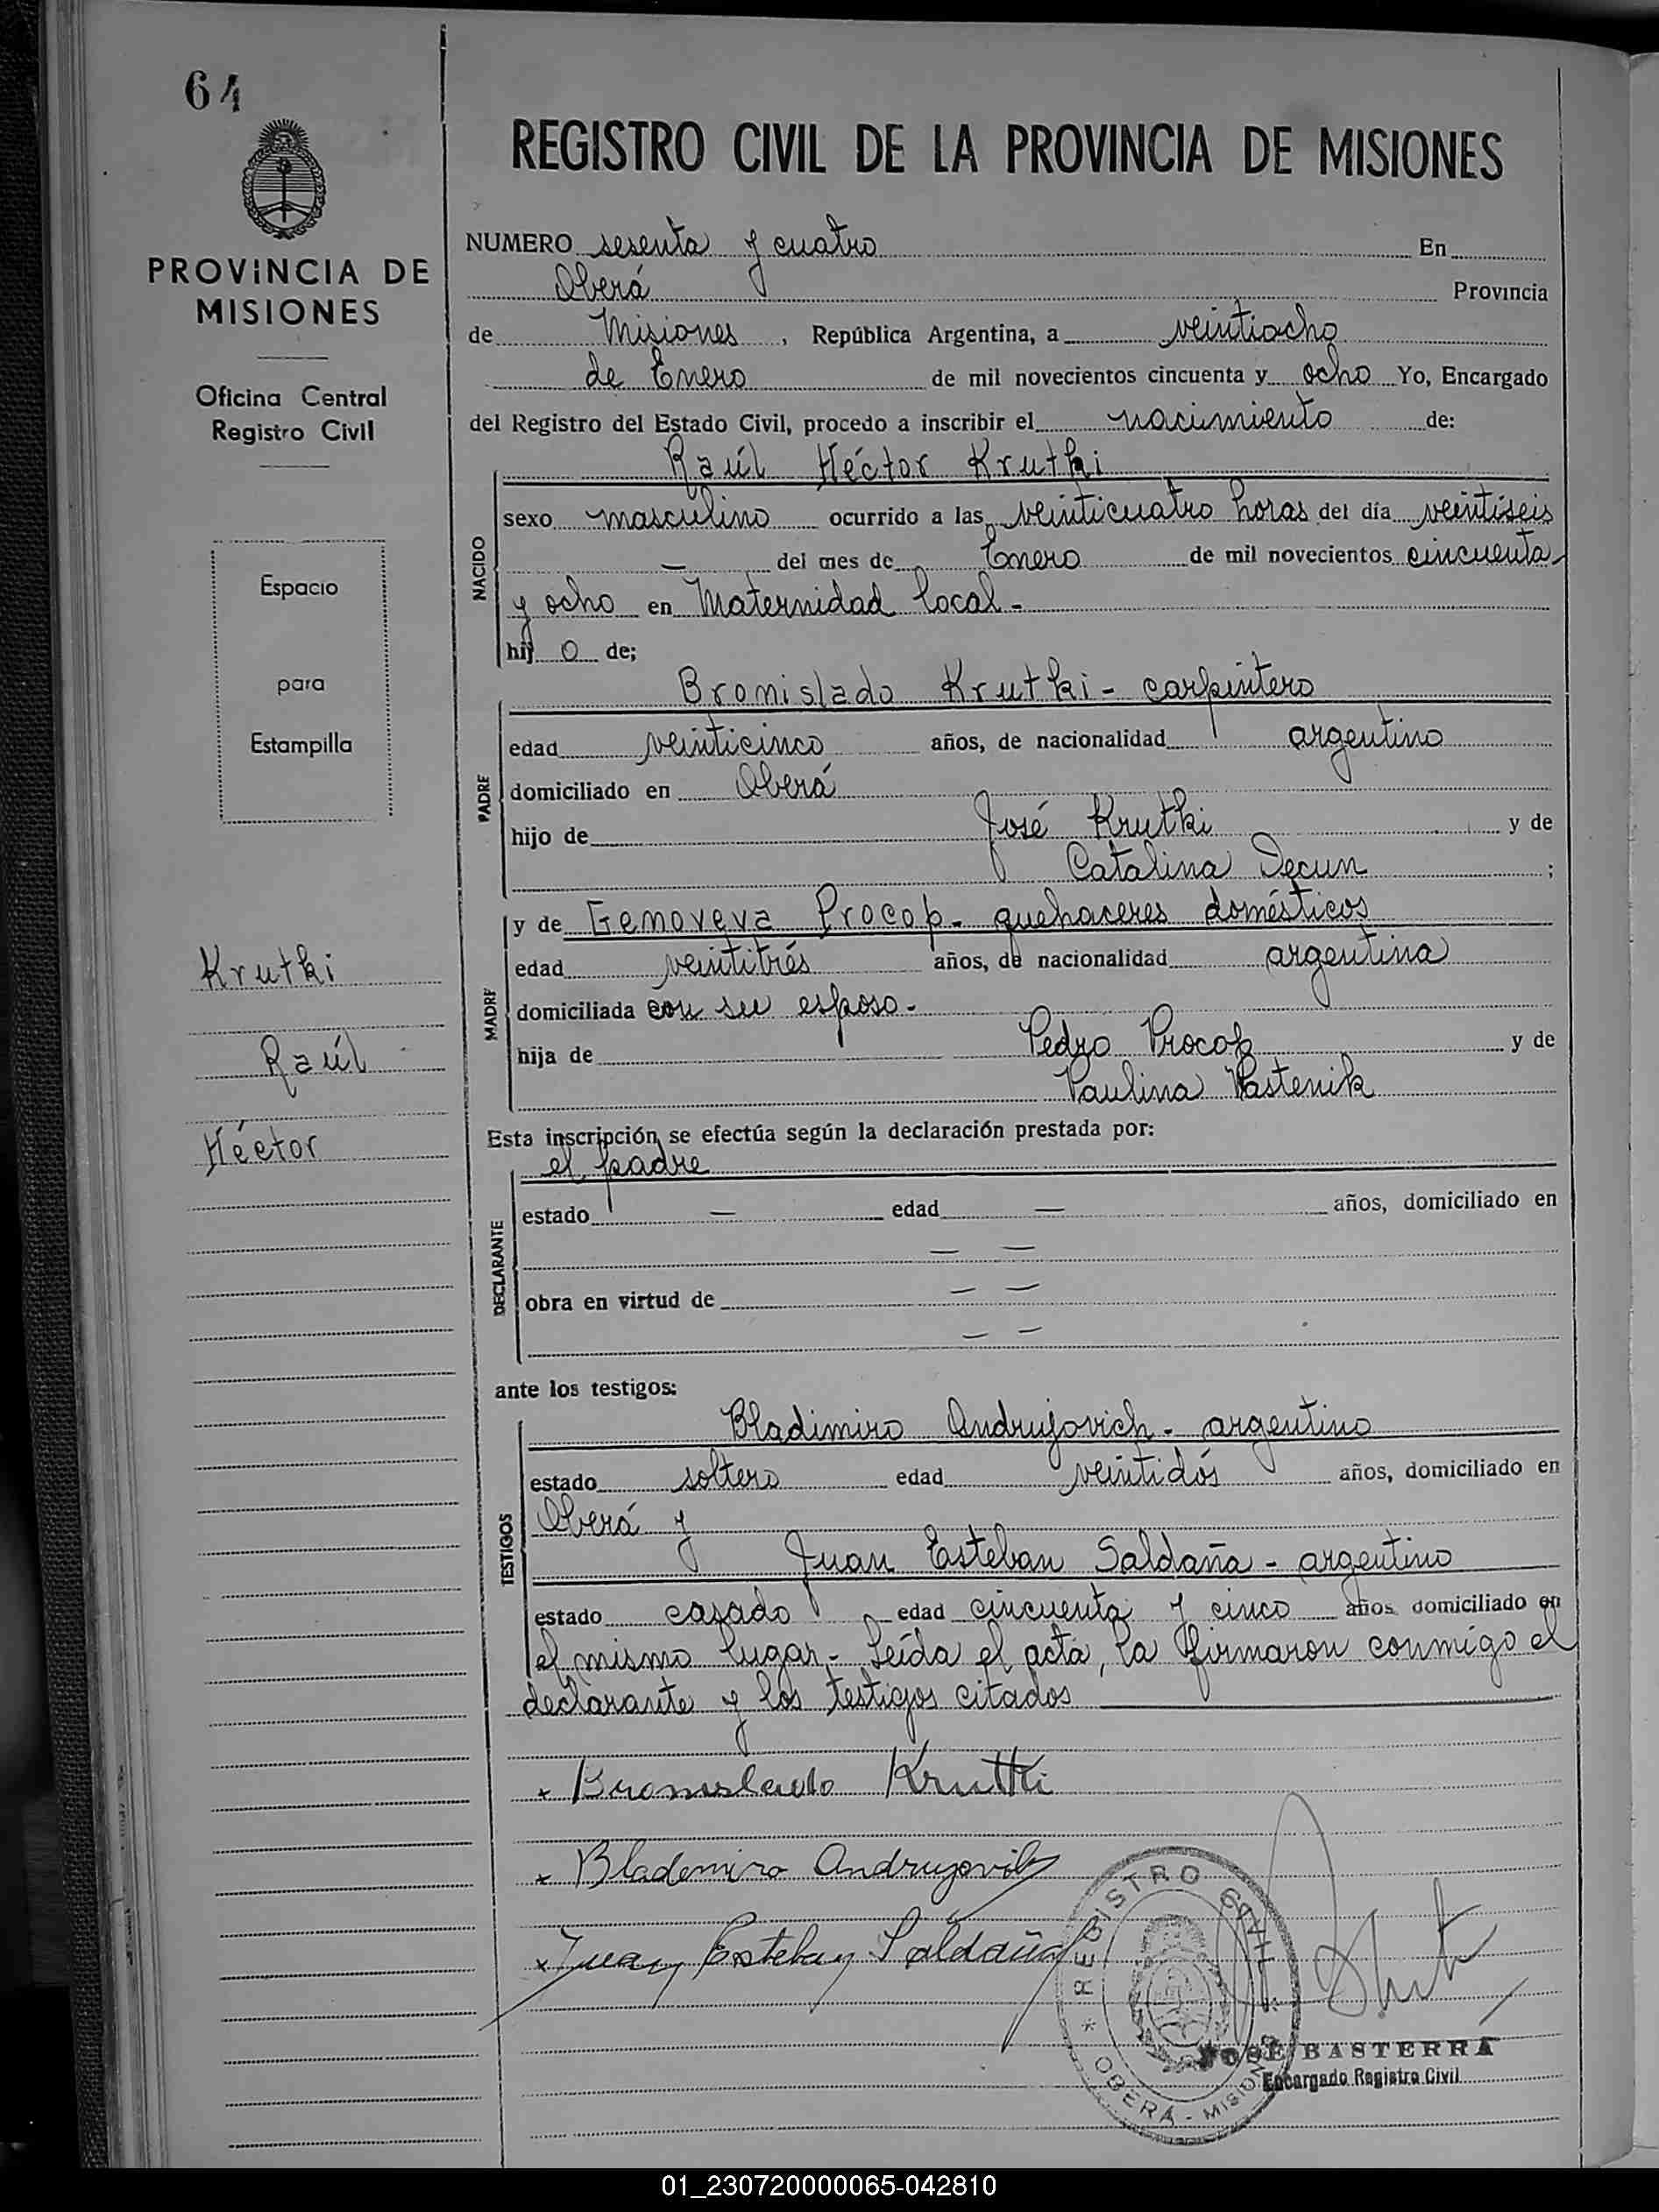 64
PROVINCIA DE
MISIONES
Oficina Central
Registro Civil
Espacio
para
Estampilla
Krutki
Raúl
Héctor
REGISTRO CIVIL DE LA PROVINCIA DE MISIONES
NUMERO sesenta y cuatro En
Oberá Provincia
de Misiones, República Argentina, a veintiocho
de Enero de mil novecientos cincuenta y ocho Yo, Encargado
del Registro del Estado Civil, procedo a inscribir el nacimiento de:
Raúl Héctor Krutki
NACIDO
sexo masculino ocurrido a las veinticuatro horas del día veintiseis
— del mes de Enero de mil novecientos cincuenta
y ocho en Maternidad local -
hij o de;
Bronislado Krutki - carpintero
PADRE
edad veinticinco años, de nacionalidad argentino
domiciliado en Oberá
hijo de José Krutki y de
Catalina Decun ;
y de Genoveva Procop - quehaceres domésticos
MADRE
edad veintitrés años, de nacionalidad argentina
domiciliada con su esposo -
hija de Pedro Procop y de
Paulina Wastenik
Esta inscripción se efectúa según la declaración prestada por:
el padre
DECLARANTE
estado — edad — años, domiciliado en
— —
obra en virtud de — —
— —
ante los testigos:
Bladimiro Andrujovich - argentino
TESTIGOS
estado soltero edad veintidós años, domiciliado en
Oberá y
Juan Esteban Saldaña - argentino
estado casado edad cincuenta y cinco años domiciliado en
el mismo lugar - Leída el acta, la firmaron conmigo el
declarante y los testigos citados
x Bronislado Krutki
x Blademiro Andrujovich
x Juan Esteban Saldaña
REGISTRO CIVIL
* OBERÁ - MISIONES *
JOSÉ BASTERRA
Encargado Registro Civil
01_230720000065-042810